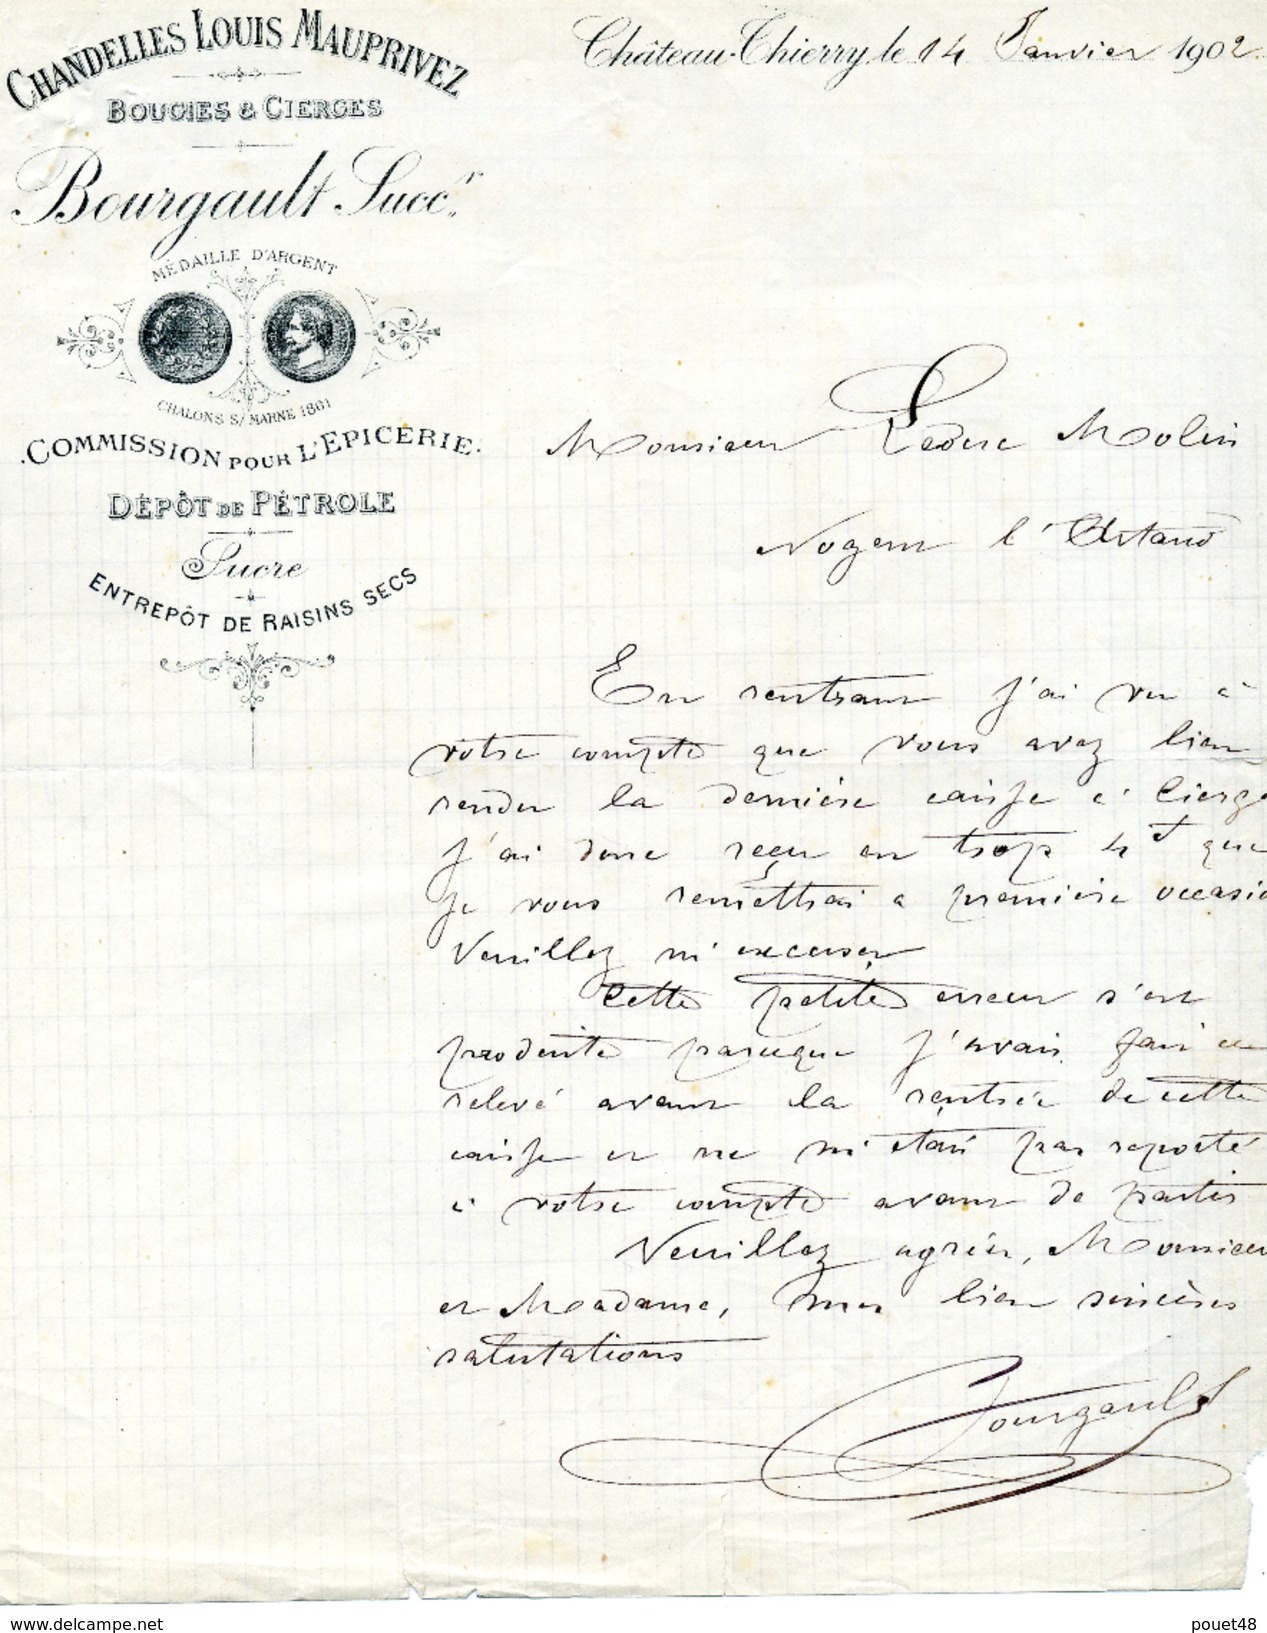 CHANDELLES LOUIS MAUPRIVEZ
BOUGIES & CIERGES
Bourgault Succr.
MÉDAILLE D'ARGENT
CHALONS S/ MARNE 1861
COMMISSION POUR L'EPICERIE.
DÉPÔT DE PÉTROLE
Sucre
ENTREPÔT DE RAISINS SECS
Château-Thierry, le 14 Janvier 1902
Monsieur Leduc Molin
Nogent l'Artaud
En rentrant j'ai vu à
votre compte que vous avez bien
rendu la dernière caisse à cierge
j'ai donc reçu en trop 4f que
je vous remettrai a première occasio
Veuillez m'excuser
Cette petite erreur s'est
produite parceque j'avais fait ce
relevé avant la rentrée de cette
caisse et ne m'était pas reporté
à votre compte avant de partir
Veuillez agréer, Monsieur
et Madame, mes bien sincères
salutations
Bourgault
www.delcampe.net
pouet48